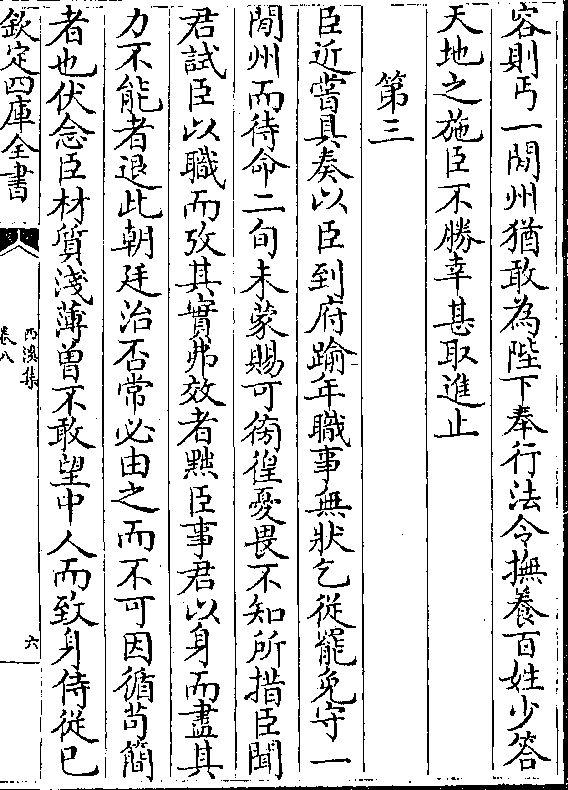 容則丐一閒州猶敢為陛下奉行法令撫養百姓少答
天地之施臣不勝幸甚取進止
第三
臣近嘗具奏以臣到府踰年職事無狀乞從罷免守一
閒州而待命二旬未蒙賜可徬徨憂畏不知所措臣聞
君試臣以職而攷其實弗效者黜臣事君以身而盡其
力不能者退此朝廷治否常必由之而不可因循苟簡
者也伏念臣材質淺薄曽不敢望中人而致身侍從已
欽定四庫全書
西溪集
卷八
六